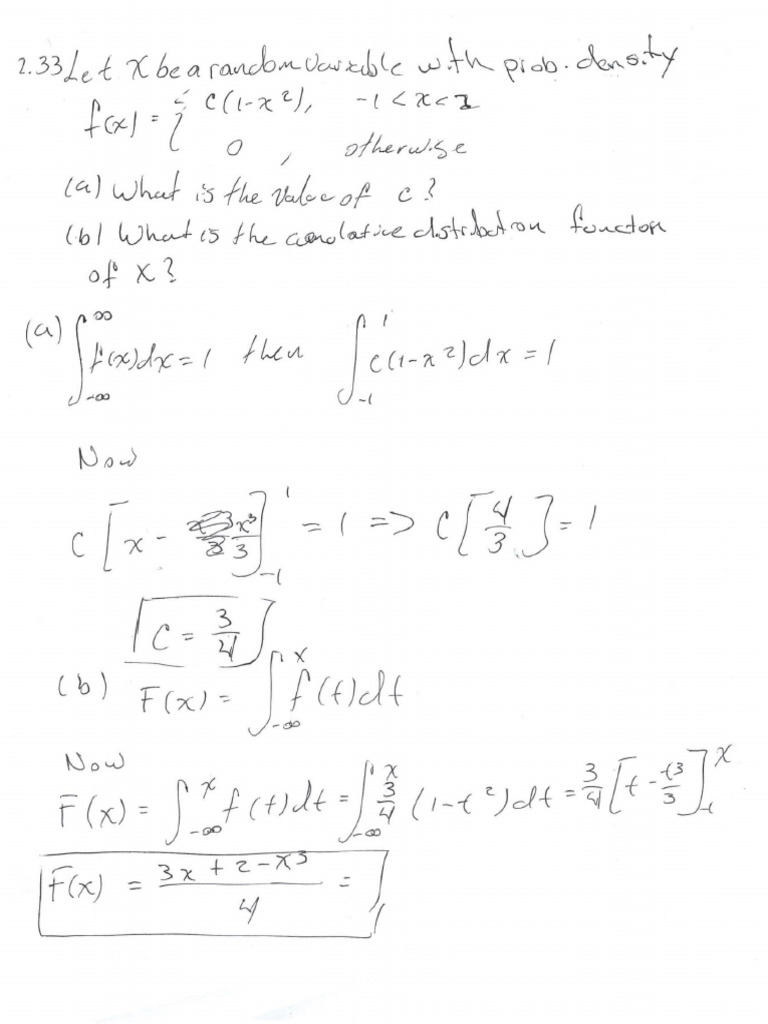 2.33 Let X be a random variable with prob. density
f(x) = { c(1-x²), -1 < x < 1
0, otherwise
(a) What is the value of c?
(b) What is the cumulative distribution function
of X?
(a) ∫_{-∞}^{∞} f(x)dx = 1 then ∫_{-1}^{1} c(1-x²)dx = 1
Now
c[x - x³/3]_{-1}^{1} = 1 => c[4/3] = 1
c = 3/4
(b) F(x) = ∫_{-∞}^{x} f(t)dt
Now
F(x) = ∫_{-∞}^{x} f(t)dt = ∫_{-∞}^{x} 3/4 (1-t²)dt = 3/4 [t - t³/3]_{-1}^{x}
F(x) = (3x + 2 - x³)/4 =